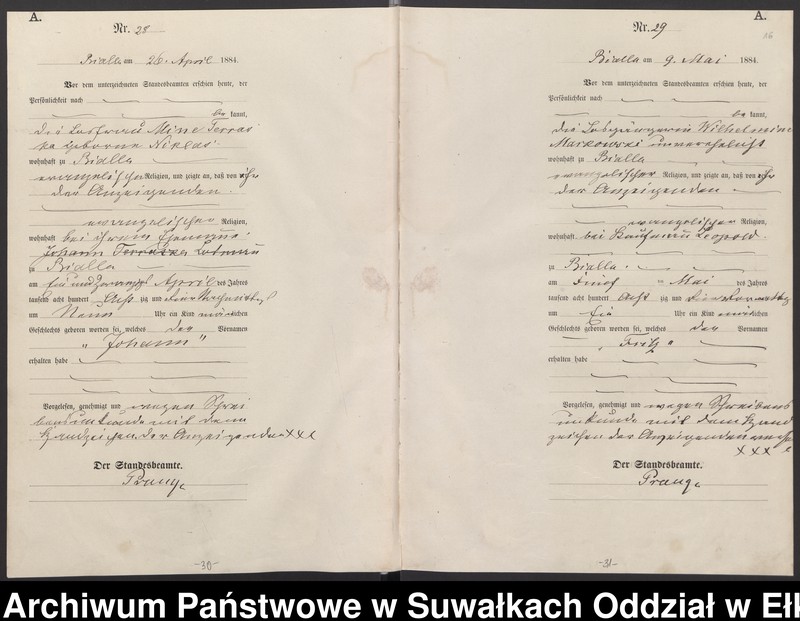 A.
Nr. 28
Bialla am 26. April 1884.
Vor dem unterzeichneten Standesbeamten erschien heute, der
Persönlichkeit nach
be kannt,
die Losfrau Mine Terras
ka geborne Niklas
wohnhaft zu Bialla
evangelischer Religion, und zeigte an, daß von ihr
der Anzeigenden
evangelischer Religion,
wohnhaft bei ihrem Ehemann
Johann Terraska
zu Bialla
am ein und zwanzigst April des Jahres
tausend acht hundert Acht zig und vier Nachmittag
um Neun Uhr ein Kind männlichen
Geschlechts geboren worden sei, welches den Vornamen
„ Johann "
erhalten habe
Vorgelesen, genehmigt und wegen Schrei
bensunkunde mit dem
Handzeichen der Anzeigenden XXX
Der Standesbeamte.
Prang
-30-
A.
16
Nr. 29
Bialla am 9. Mai 1884.
Vor dem unterzeichneten Standesbeamten erschien heute, der
Persönlichkeit nach
be kannt,
die Wilhelmine
Markowski unverehelicht
wohnhaft zu Bialla
evangelischer Religion, und zeigte an, daß von ihr
der Anzeigenden
evangelischer Religion,
wohnhaft bei Kaufmann Leopold
zu Bialla
am fünf Mai des Jahres
tausend acht hundert Acht zig und vier Vormittag
um ein Uhr ein Kind männlichen
Geschlechts geboren worden sei, welches den Vornamen
„ Fritz "
erhalten habe
Vorgelesen, genehmigt und wegen Schreibens
unkunde mit dem Hand
zeichen der Anzeigenden
XXX
Der Standesbeamte.
Prang
-31-
Archiwum Państwowe w Suwałkach Oddział w Eł